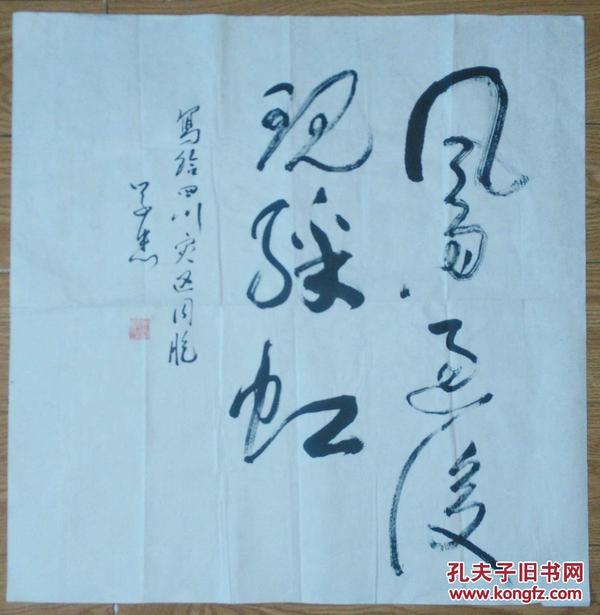 風雨過後
現綵虹
寫给四川灾区同胞
学杰
孔夫子旧书网
www.kongfz.com